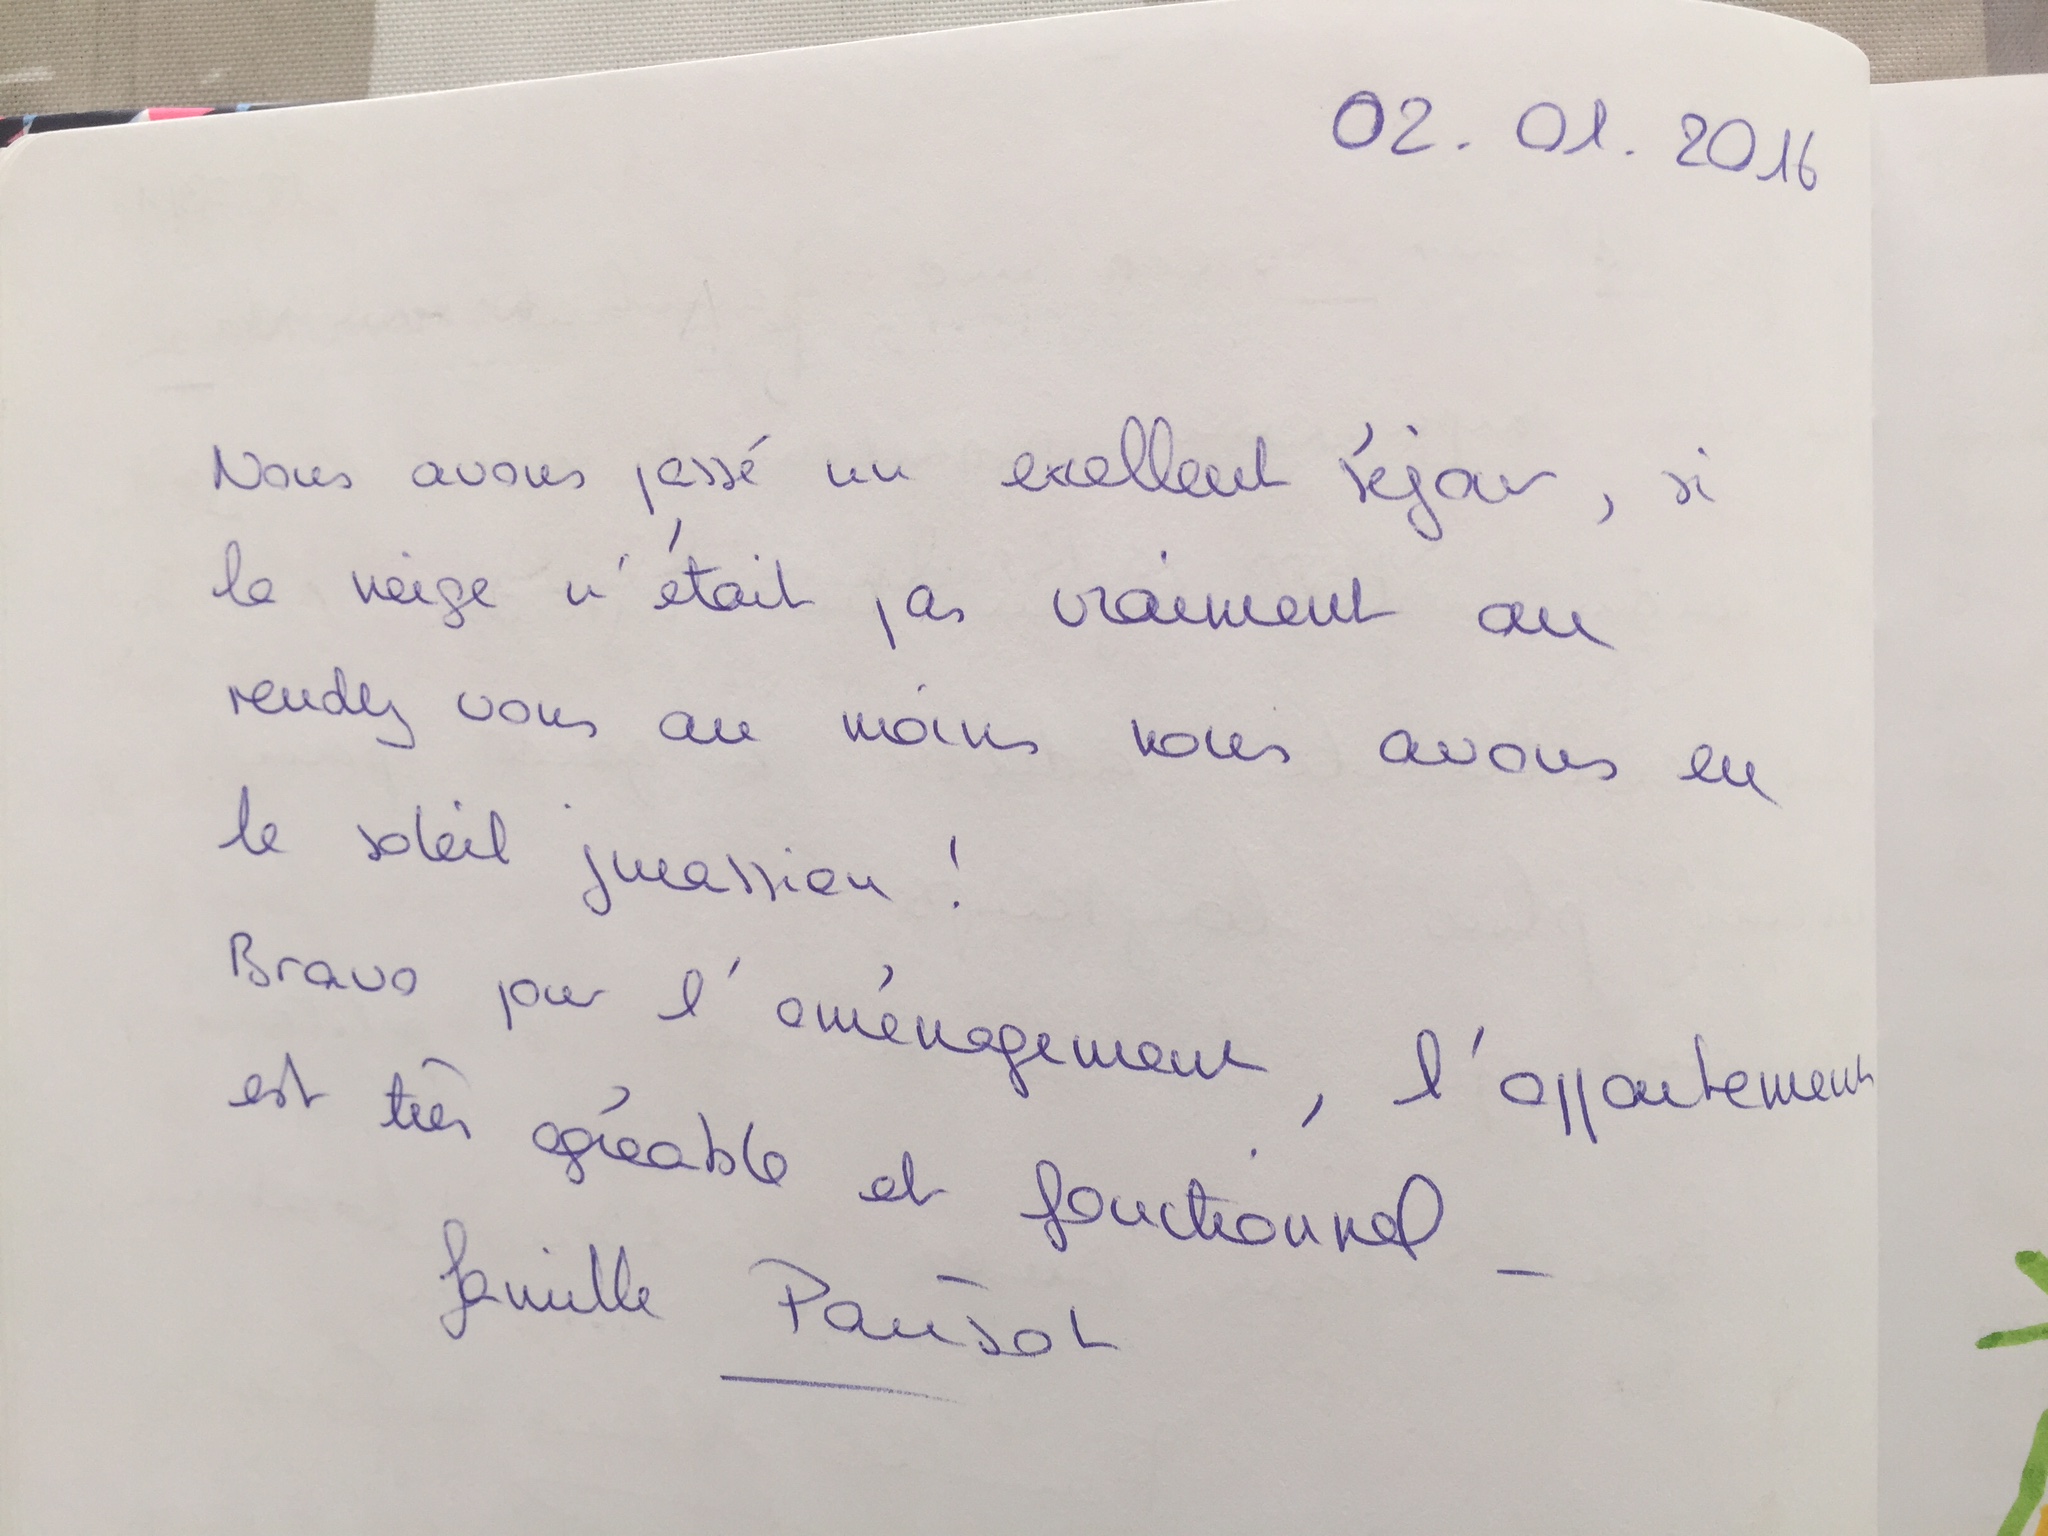 02.01.2016
Nous avons passé un excellent séjour, si
la neige n'était pas vraiment au
rendez vous au moins nous avons eu
le soleil jurassien !
Bravo pour l'aménagement, l'appartement
est très agréable et fonctionnel _
famille